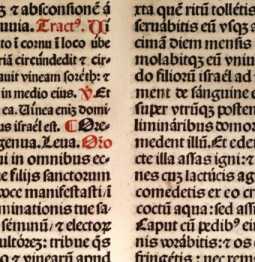 ⁊ absconsionē a
uuia. Tractꝰ. Ui
to ī cornu ī loco ube
riā circūdedit ⁊ cir-
auit vineam soreth: ⁊
in medio eius. ℣.
ea. Uinea enim domi
us israel est. Ore-
genua. Leua. Oīo
ui in omnibus ec-
e filijs sanctorum
voce manifestasti ī
minationis tue sa-
seminū ⁊ electoꝝ
ultorē: tribue q̄s
⁊ vinearū apud
xta quē ritū tolletis
seruabitis eū vsqꝫ a
cimā diem mensis
molabitqꝫ eū vniu
do filiorū israel ad
ment de sanguine e
super vtrūqꝫ posten
liminaribus domo
medent illū. Et eden
cte illa assas igni: ⁊
nes cū lactucis ag
comedetis ex eo cr
coctū aqua: sed ass
Caput cū pedibꝰ ei
nis vorabitis: ⁊ os
fringetis: nec rem